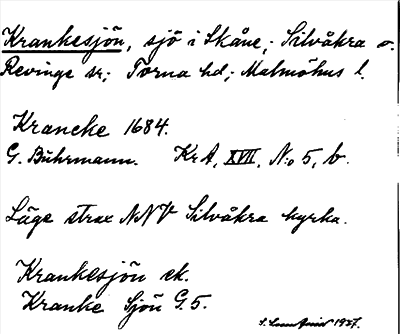 Krankesjön, sjö i Skåne; Silvåkra o.
Revinge sr; Torna hd; Malmöhus l.
Krancke 1684.
G. Buhrmann. KrA, XVII, N:o 5, b.
Läge strax NNV Silvåkra kyrka.
Krankesjön ek.
Kranke Sjön G.5.
1927.